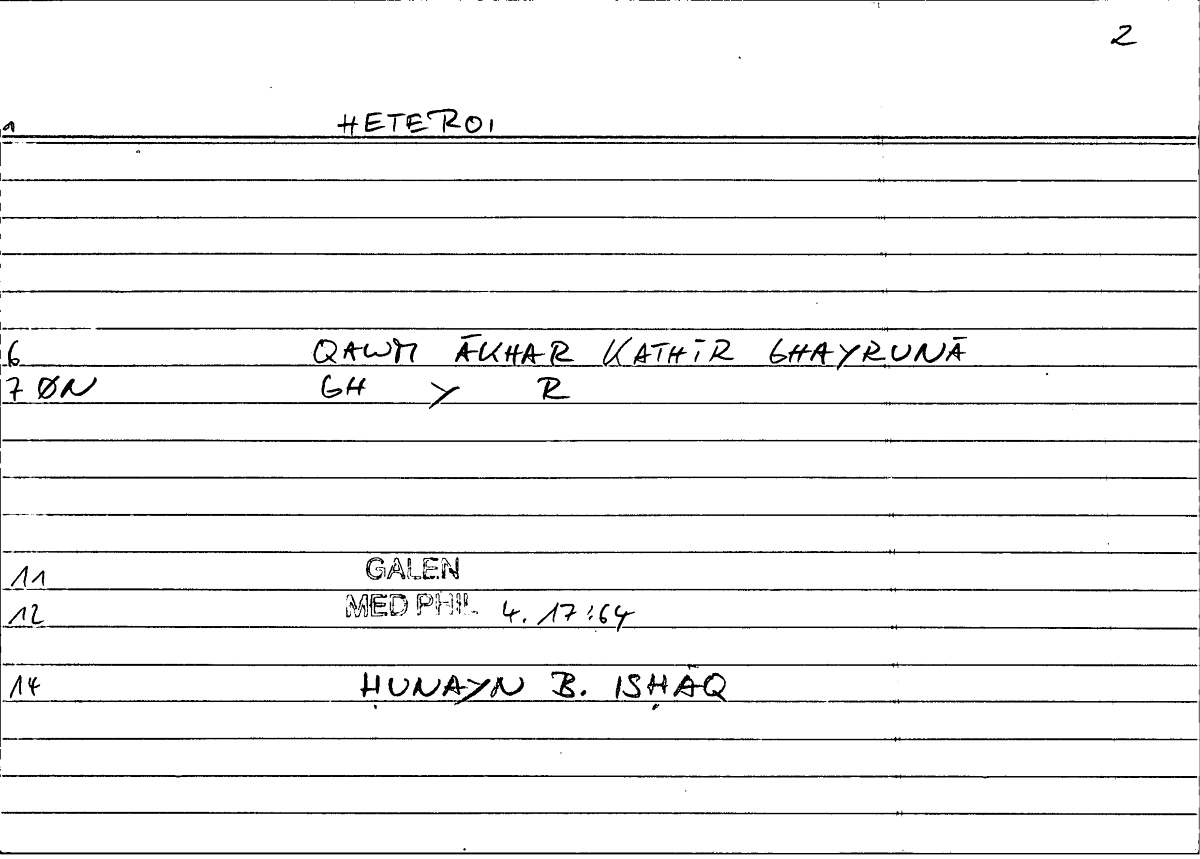 2
1 HETEROI
6 QAWM ĀKHAR KATHĪR GHAYRUNĀ
7 ØN GH Y R
11 GALEN
12 MED PHIL 4. 17:64
14 ḤUNAYN B. ISḤĀQ